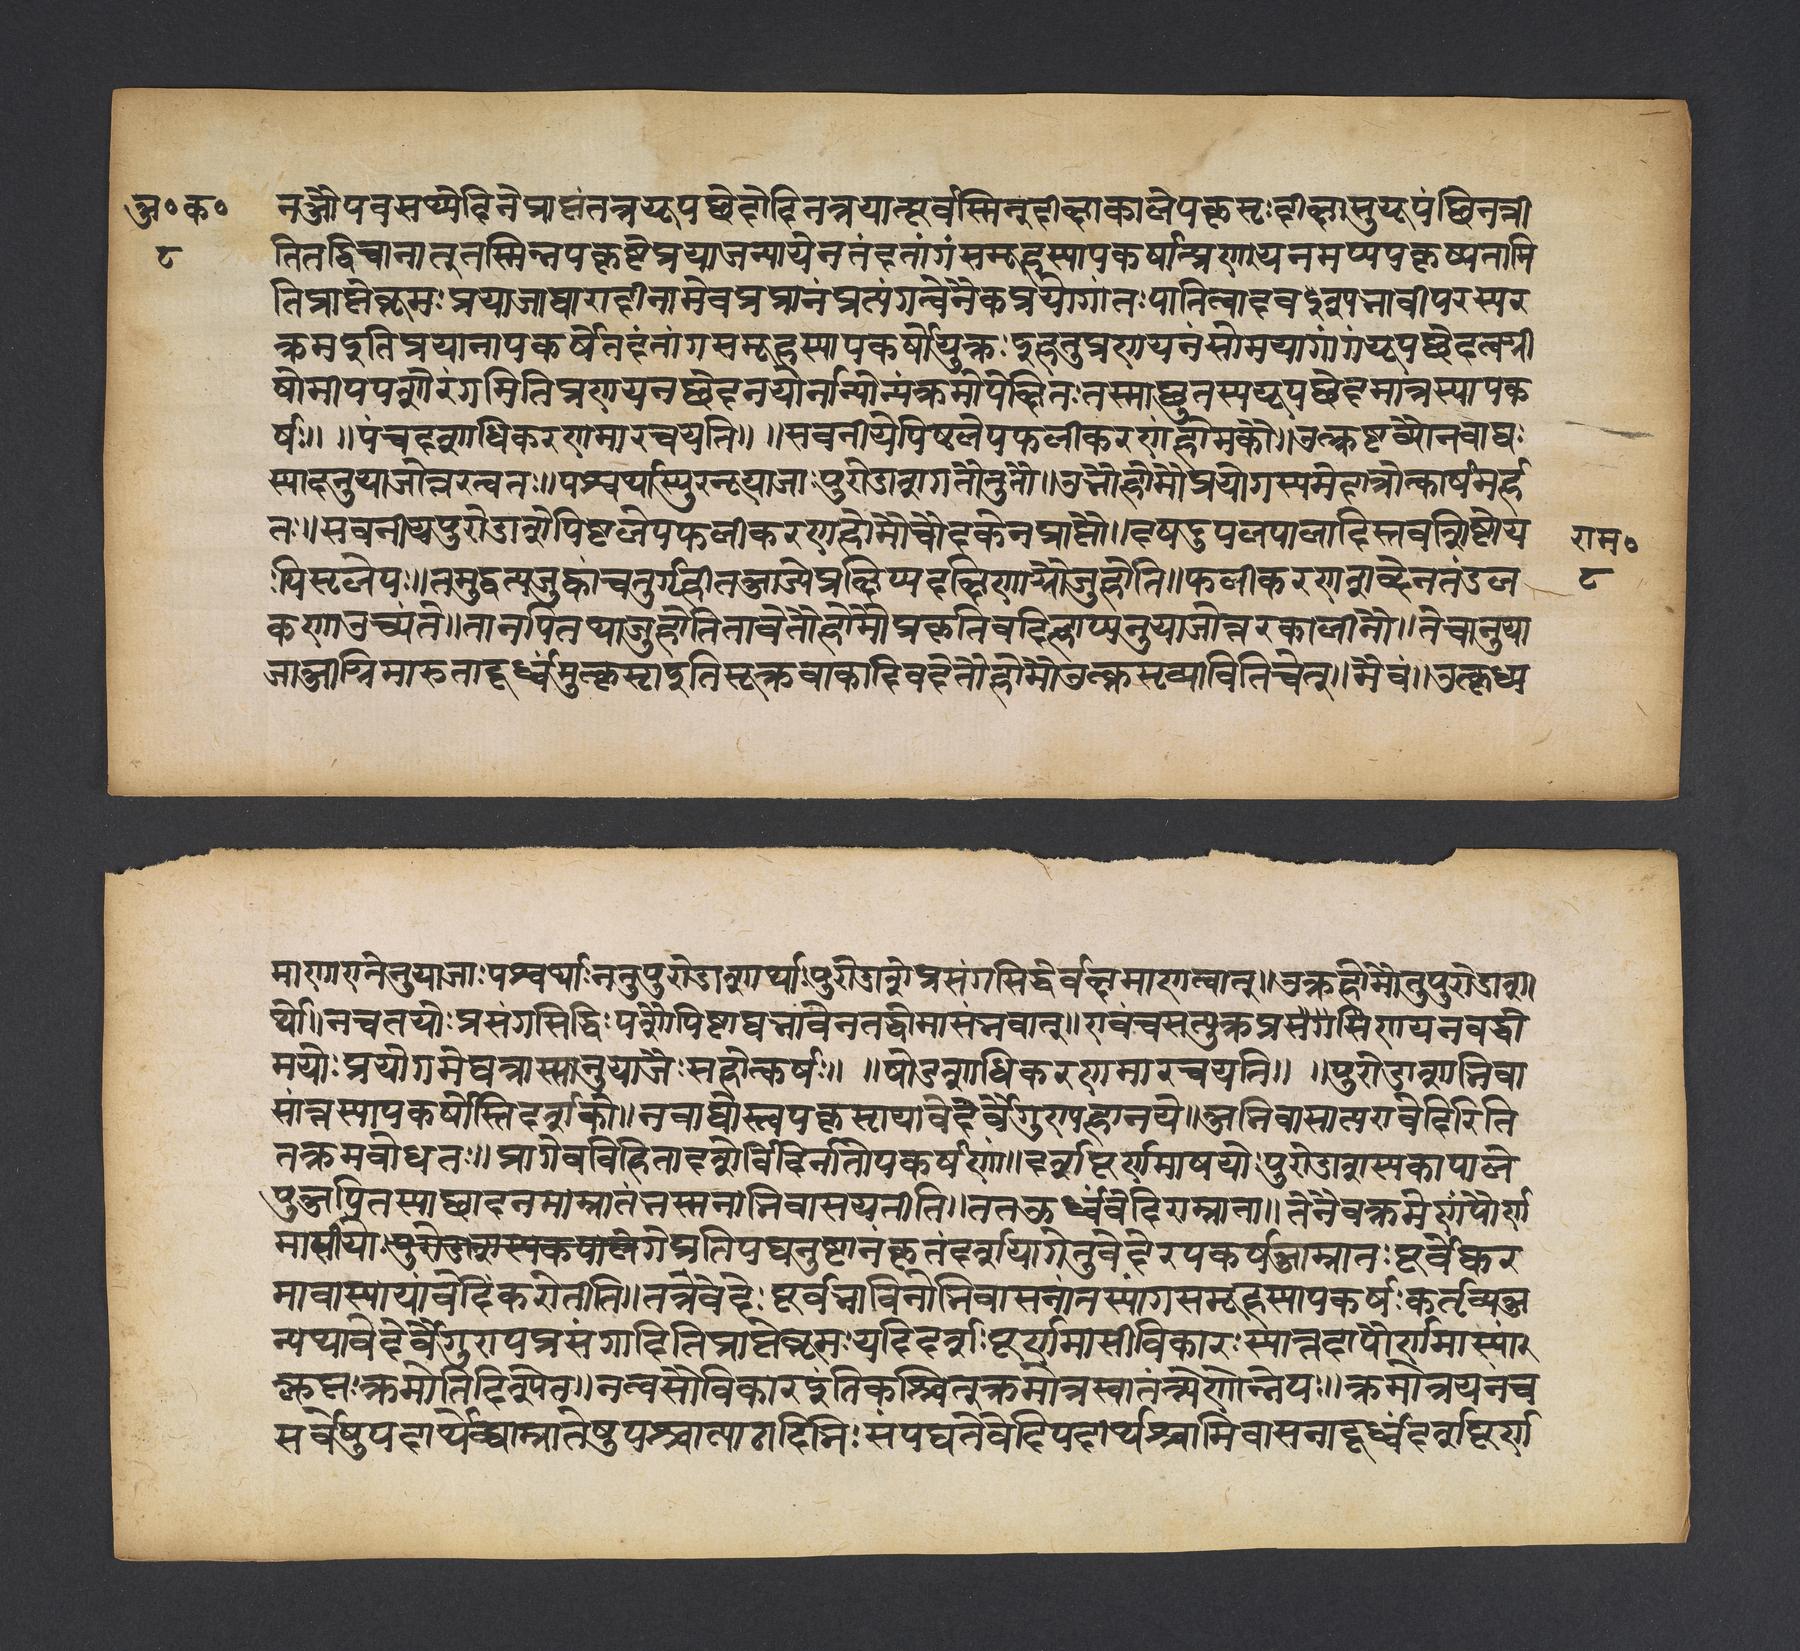 अ॰क॰
८
नऔपवसथ्येहिनेप्राप्तंतत्रयूपछेदोहिनत्रयात्पूर्वस्मिन्दीक्षाकालेपकृष्टःदीक्षासुयूपंछिनत्ती
तितद्विधानात्तस्मिन्नपकृष्टेप्रयाजन्यायेनतंदतांगंसमूहस्यापकर्षात्प्रणयनमप्यपकृष्यतामि
तिप्राप्तेब्रूमःप्रयाजाघारादीनामेवप्रधानंप्रत्यंगत्वेनैकप्रयोगांतःपातित्वादवइशभावीपरस्पर
क्रमइतिप्रयाजापकर्षेतदंतांगसमूहस्यापकर्षोयुक्तःइहतुप्रणयनंसोमयागांगंयूपछेदत्वग्री
षोमीपपशोरंगमितिप्रणयनछेदनयोर्नान्योन्यंक्रमोपेक्षितःतस्माछ्रुतस्ययूपछेदमात्रस्यापक
र्षः॥ ॥पंचदशाधिकरणमारचयति॥ ॥सवनीयेपिष्टलेपफलीकरणहोमकौ॥उत्कृष्टव्यौनवाद्यः
स्यादनुयाजोत्तरत्वतः॥पश्वर्थास्युरनूयाजाःपुरोडाशगतौतुतौ॥अतोहोमौप्रयोगस्यमेदान्नोत्कर्षमर्ह
तः॥सवनीयपुरोडाशेपिष्टलेपफलीकरणहोमौचोदकेनप्राप्तौ॥दृषदुपलपालादिस्तवशिष्टोय
ःपिस्टलेपः॥तमुद्वत्यजुह्वांचतुर्गृहीतआज्येप्रक्षिप्यदक्षिणाग्नौजुहोति॥फलीकरणशब्देनतंडुल
कणाउच्यंते॥तानपितथाजुहोतितावेतौहोमौप्रकृतिवदिहाप्यनुयाजोत्तरकालीनौ॥तेचानुया
जाआग्निमारुतादूर्ध्वमुत्कृस्टाइतिसूक्तवाकादिवदेतौहोमौउत्कृस्टव्यावितिचेत्॥मैवं॥उत्कृष्य
राम॰
८
माणाएतेनुयाजाःपश्वर्थाःननुपुरोडाशार्थाःपुरोडाशेप्रसंगसिद्धेर्वक्ष्यमाणत्वात्॥उक्तहोमौतुपुरोडाशा
र्थौ॥नचतयोःप्रसंगसिद्धिःपशोपिष्टाद्यभावेनतद्धोमासंभवात्॥एवंचसत्युक्तप्रसंगसिणयनवद्धो
मयोःप्रयोगमेघन्नास्त्यनुयाजैःसहोत्कर्षः॥ ॥षोडशाधिकरणमारचयति॥ ॥पुरोडाशानिवा
सांन्नस्यापकर्षोस्तिदर्शके॥नवाद्योस्त्वपकृस्टायावेदेर्वैगुण्यहानये॥अनिवासात्परावेदिरिति
तक्रमबोधतः॥प्रागेवविहितादर्शेविविर्नातोपकर्षणं॥दर्शपूर्णमाषयोःपुरोडाशस्यकपाले
षुअपितस्याछादनमाम्नातंभस्मनाभिवासयतीति॥ततऊर्ध्वंवेदिराम्नाता॥तेनैवक्रमेणपौर्ण
मासीयापुरोडाशस्यकपालेगेप्रतिपद्यनुष्टानकृतंदर्शयागेतुवेदेरपकर्षआम्नातःपूर्वेद्युर
मावास्यायांवेदिंकरोतीति॥तत्रवेदेःपूर्वभाविनोभिवासनांतस्यांगसमूहस्यापकर्षःकर्तव्यःअ
न्यथावेदेर्वैगुण्यप्रसंगादितिप्राप्तेब्रूमःयदिदर्शःपूर्णमासीविकारःस्यात्तदापौर्णमास्यां
कृप्तःक्रमोतिदिश्येत॥नत्वसौविकारइतिकश्चित्क्रमोत्रस्वातंत्र्येणोन्नेयः॥क्रमोन्नयनंच
सर्वेषुपदार्थेष्वाम्नातेषुपश्चात्पाठादिभिःसंपद्यतेवेदिपदार्थश्चाभिवासनादूर्ध्वंदर्शपूर्ण